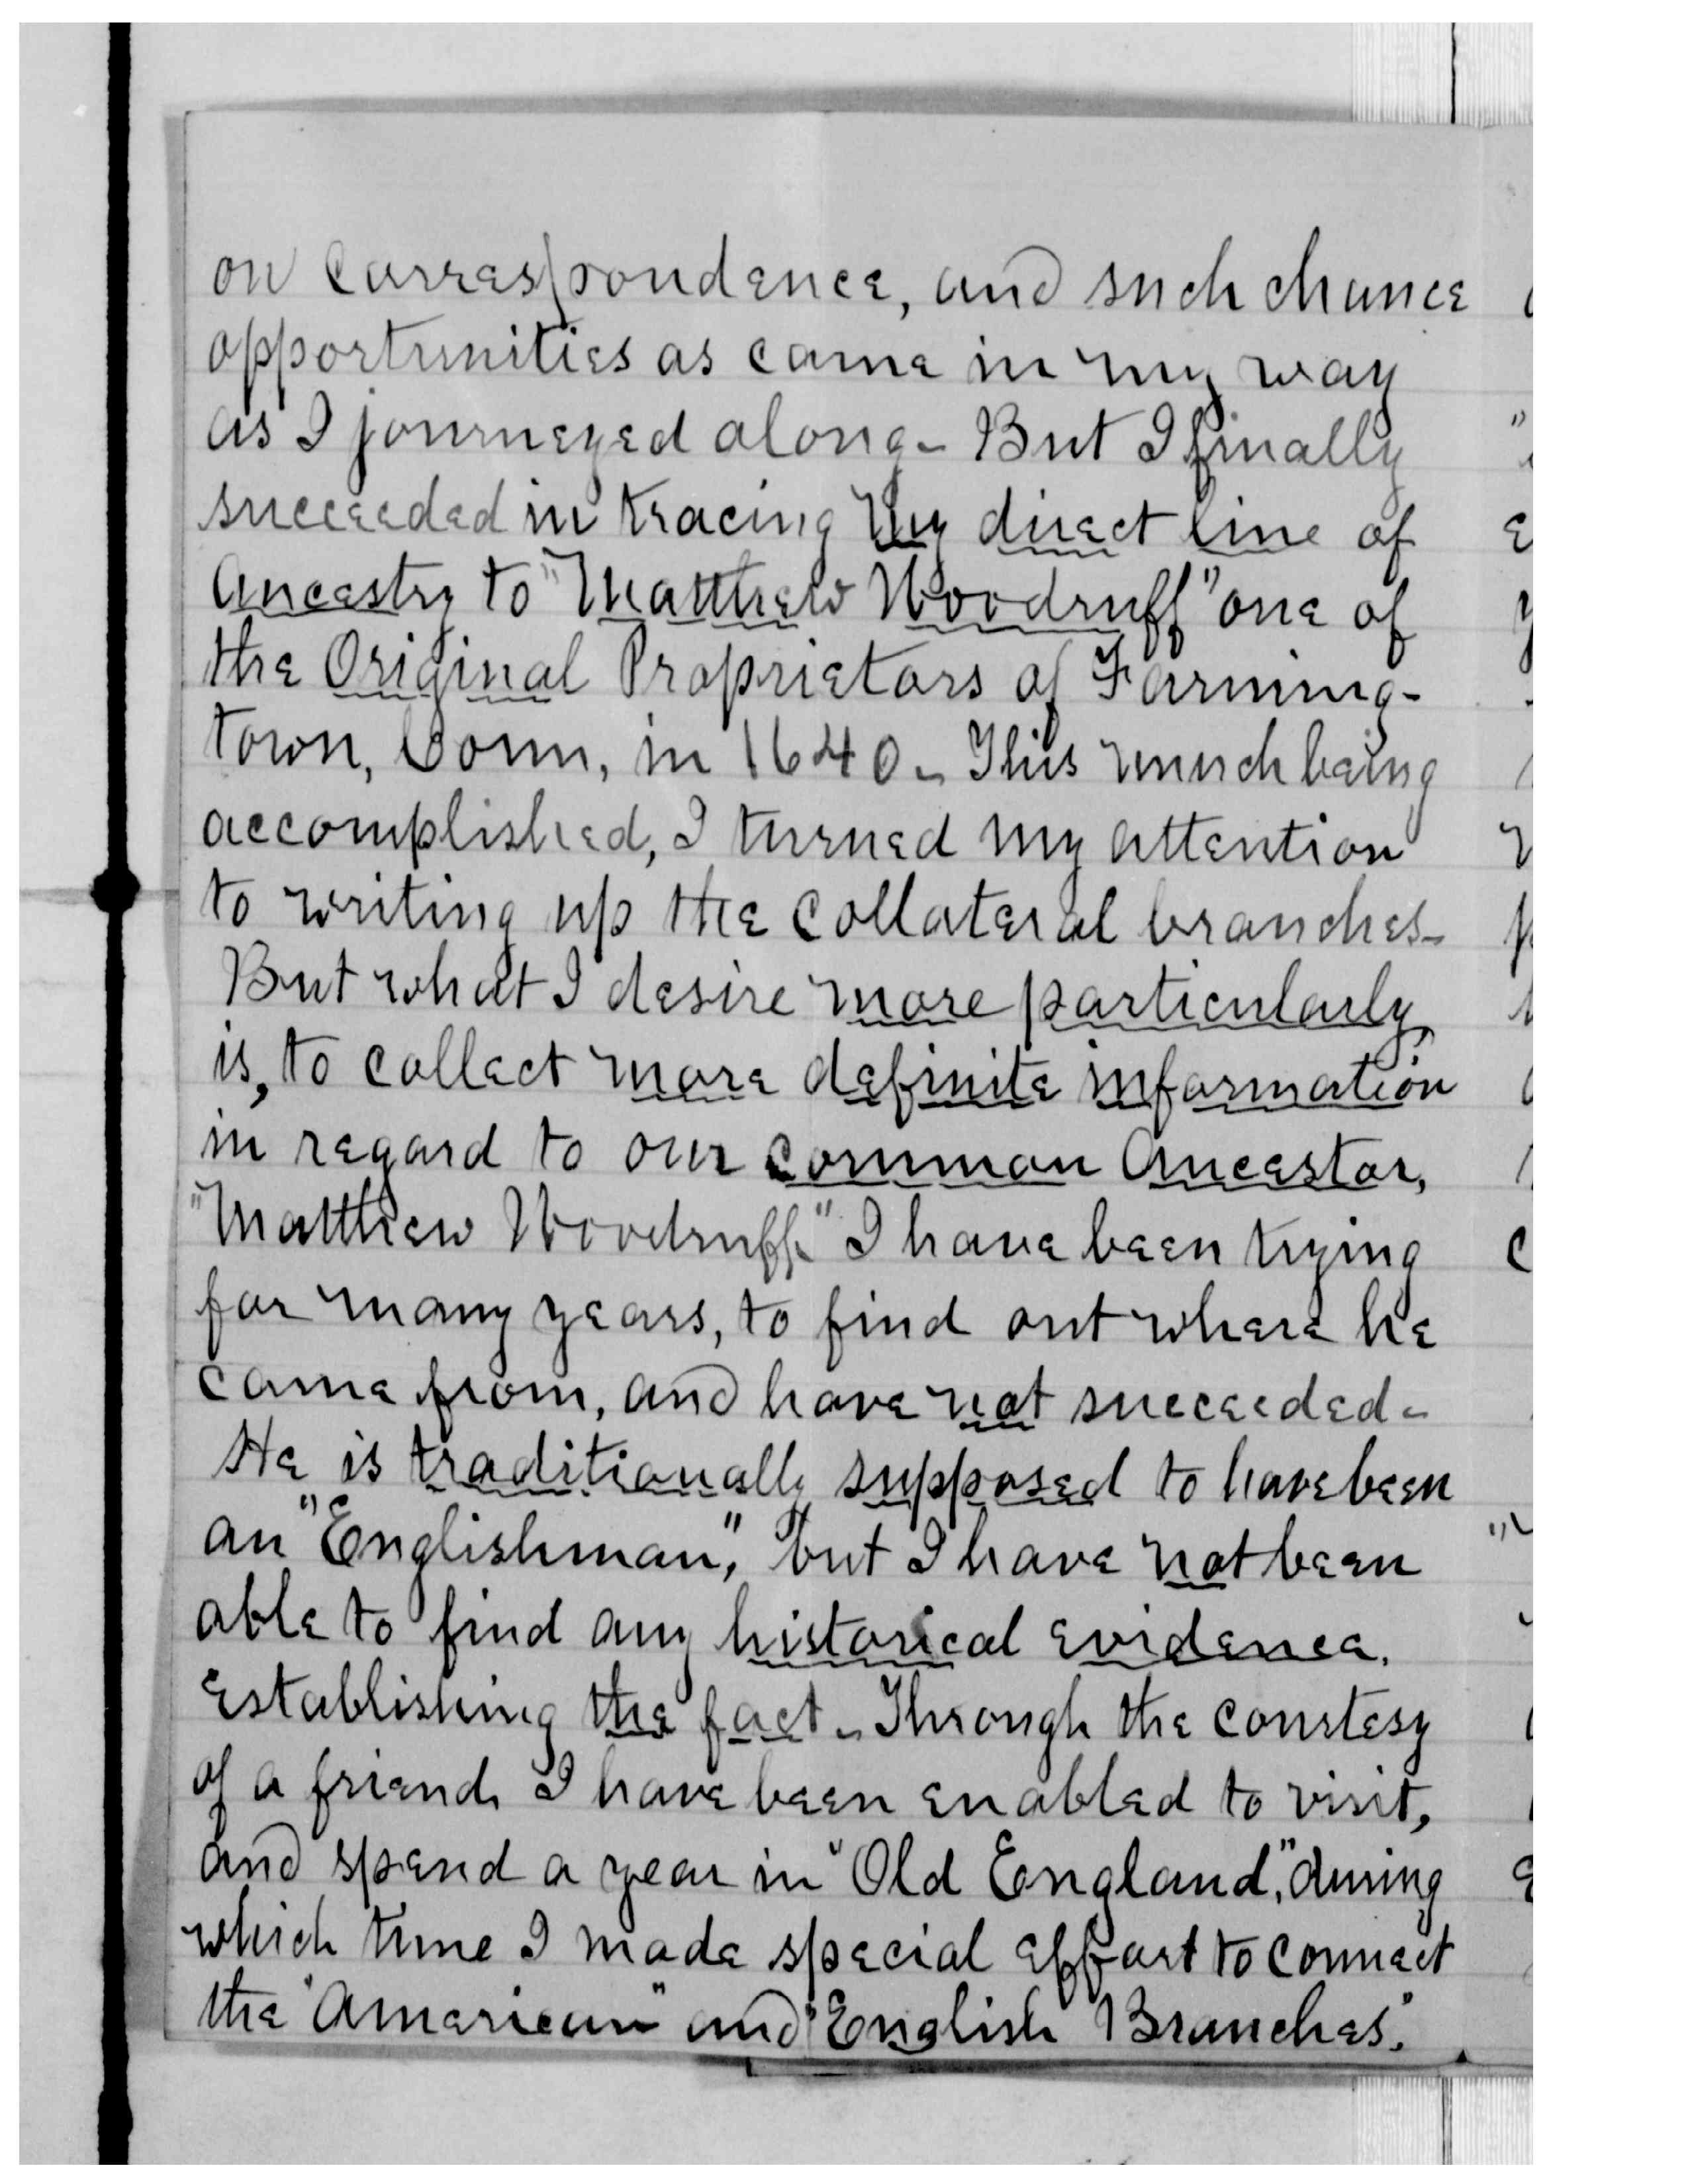 on correspondence, and such chance
opportunities as came in my way
as I journeyed along - But I finally
succeeded in tracing my direct line of
Ancestry to "Matthew Woodruff" one of
the Original Proprietors of Farming-
town, Conn, in 1640 - This much being
accomplished, I turned my attention
to writing up the collateral branches -
But what I desire more particularly,
is, to collect more definite information
in regard to our common Ancestor,
"Matthew Woodruff" I have been trying
for many years, to find out where he
came from, and have not succeeded -
He is traditionally supposed to have been
an "Englishman," but I have not been
able to find any historical evidence,
Establishing the fact - Through the courtesy
of a friend, I have been enabled to visit,
and spend a year in "Old England," during
which time I made special effort to connect
the "American" and "English Branches".